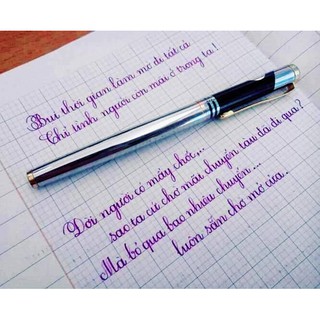 Bụi thời gian làm mờ đi tất cả
Chỉ tình người còn mãi ở trong ta!
Đời người có mấy chốc...
sao ta cứ chờ mãi chuyến tàu đã đi qua?
Mà bỏ qua bao nhiêu chuyến...
luôn sẵn chờ mở cửa.